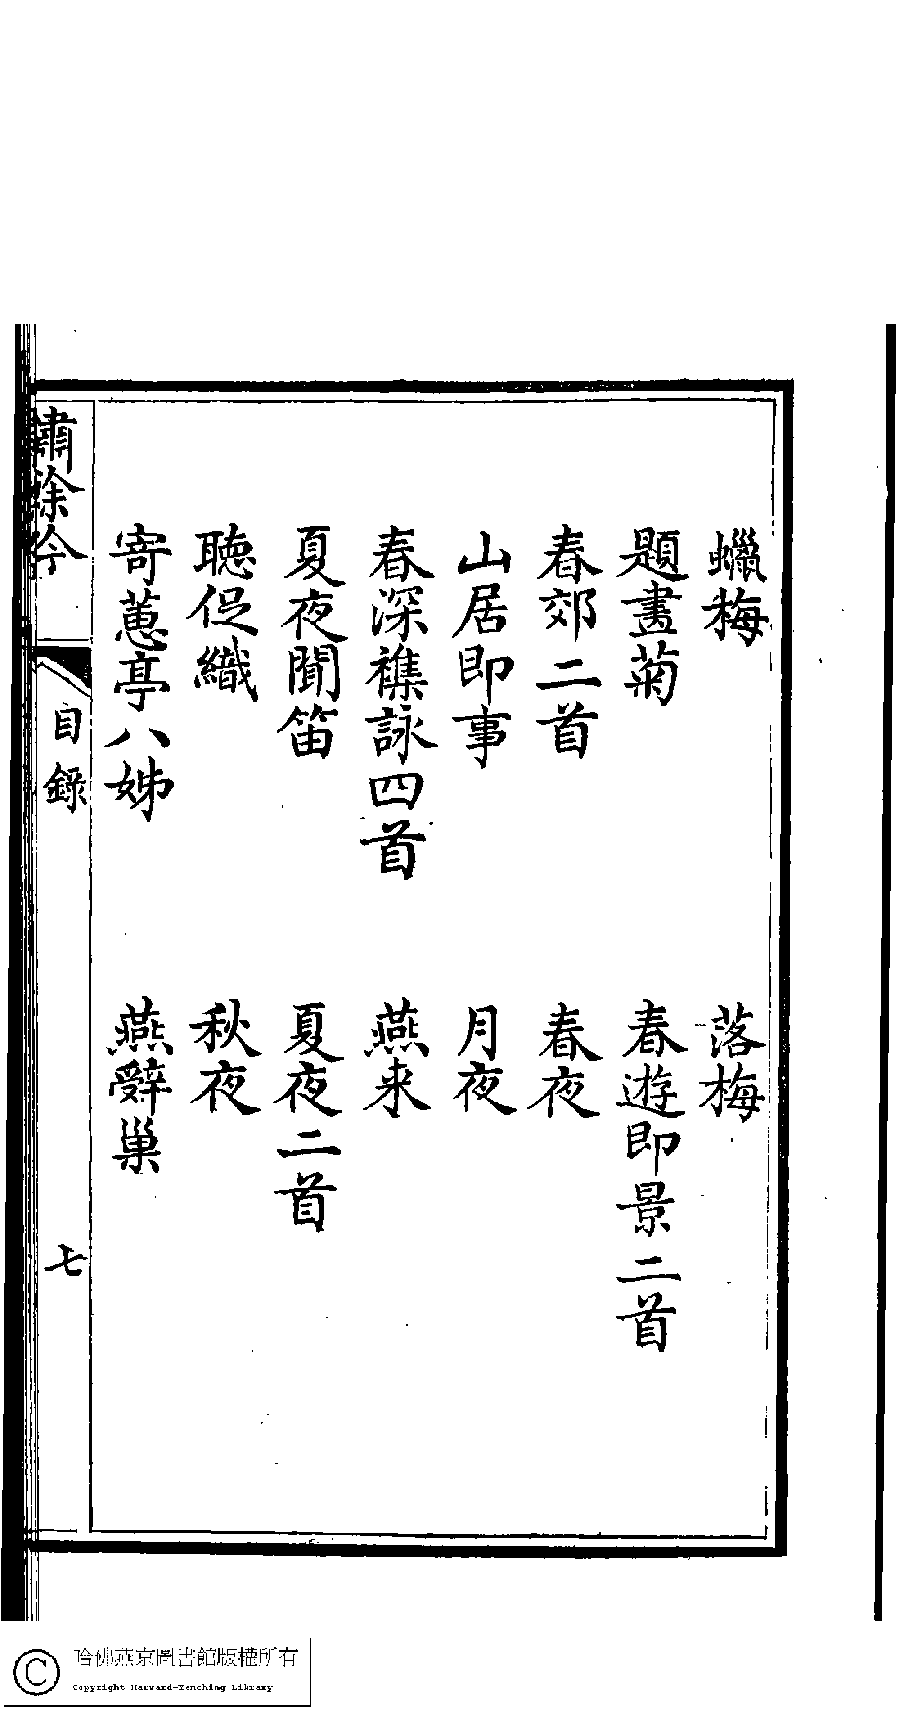 蠟梅　落梅
題畫菊　春遊即景二首
春郊二首　春夜
山居即事　月夜
春深襍詠四首　燕来
夏夜聞笛　夏夜二首
聽促織　秋夜
寄蕙亭八姊　燕辭巢
繡餘吟
目錄
七
哈佛燕京圖書館版權所有
Copyright Harvard-Yenching Library